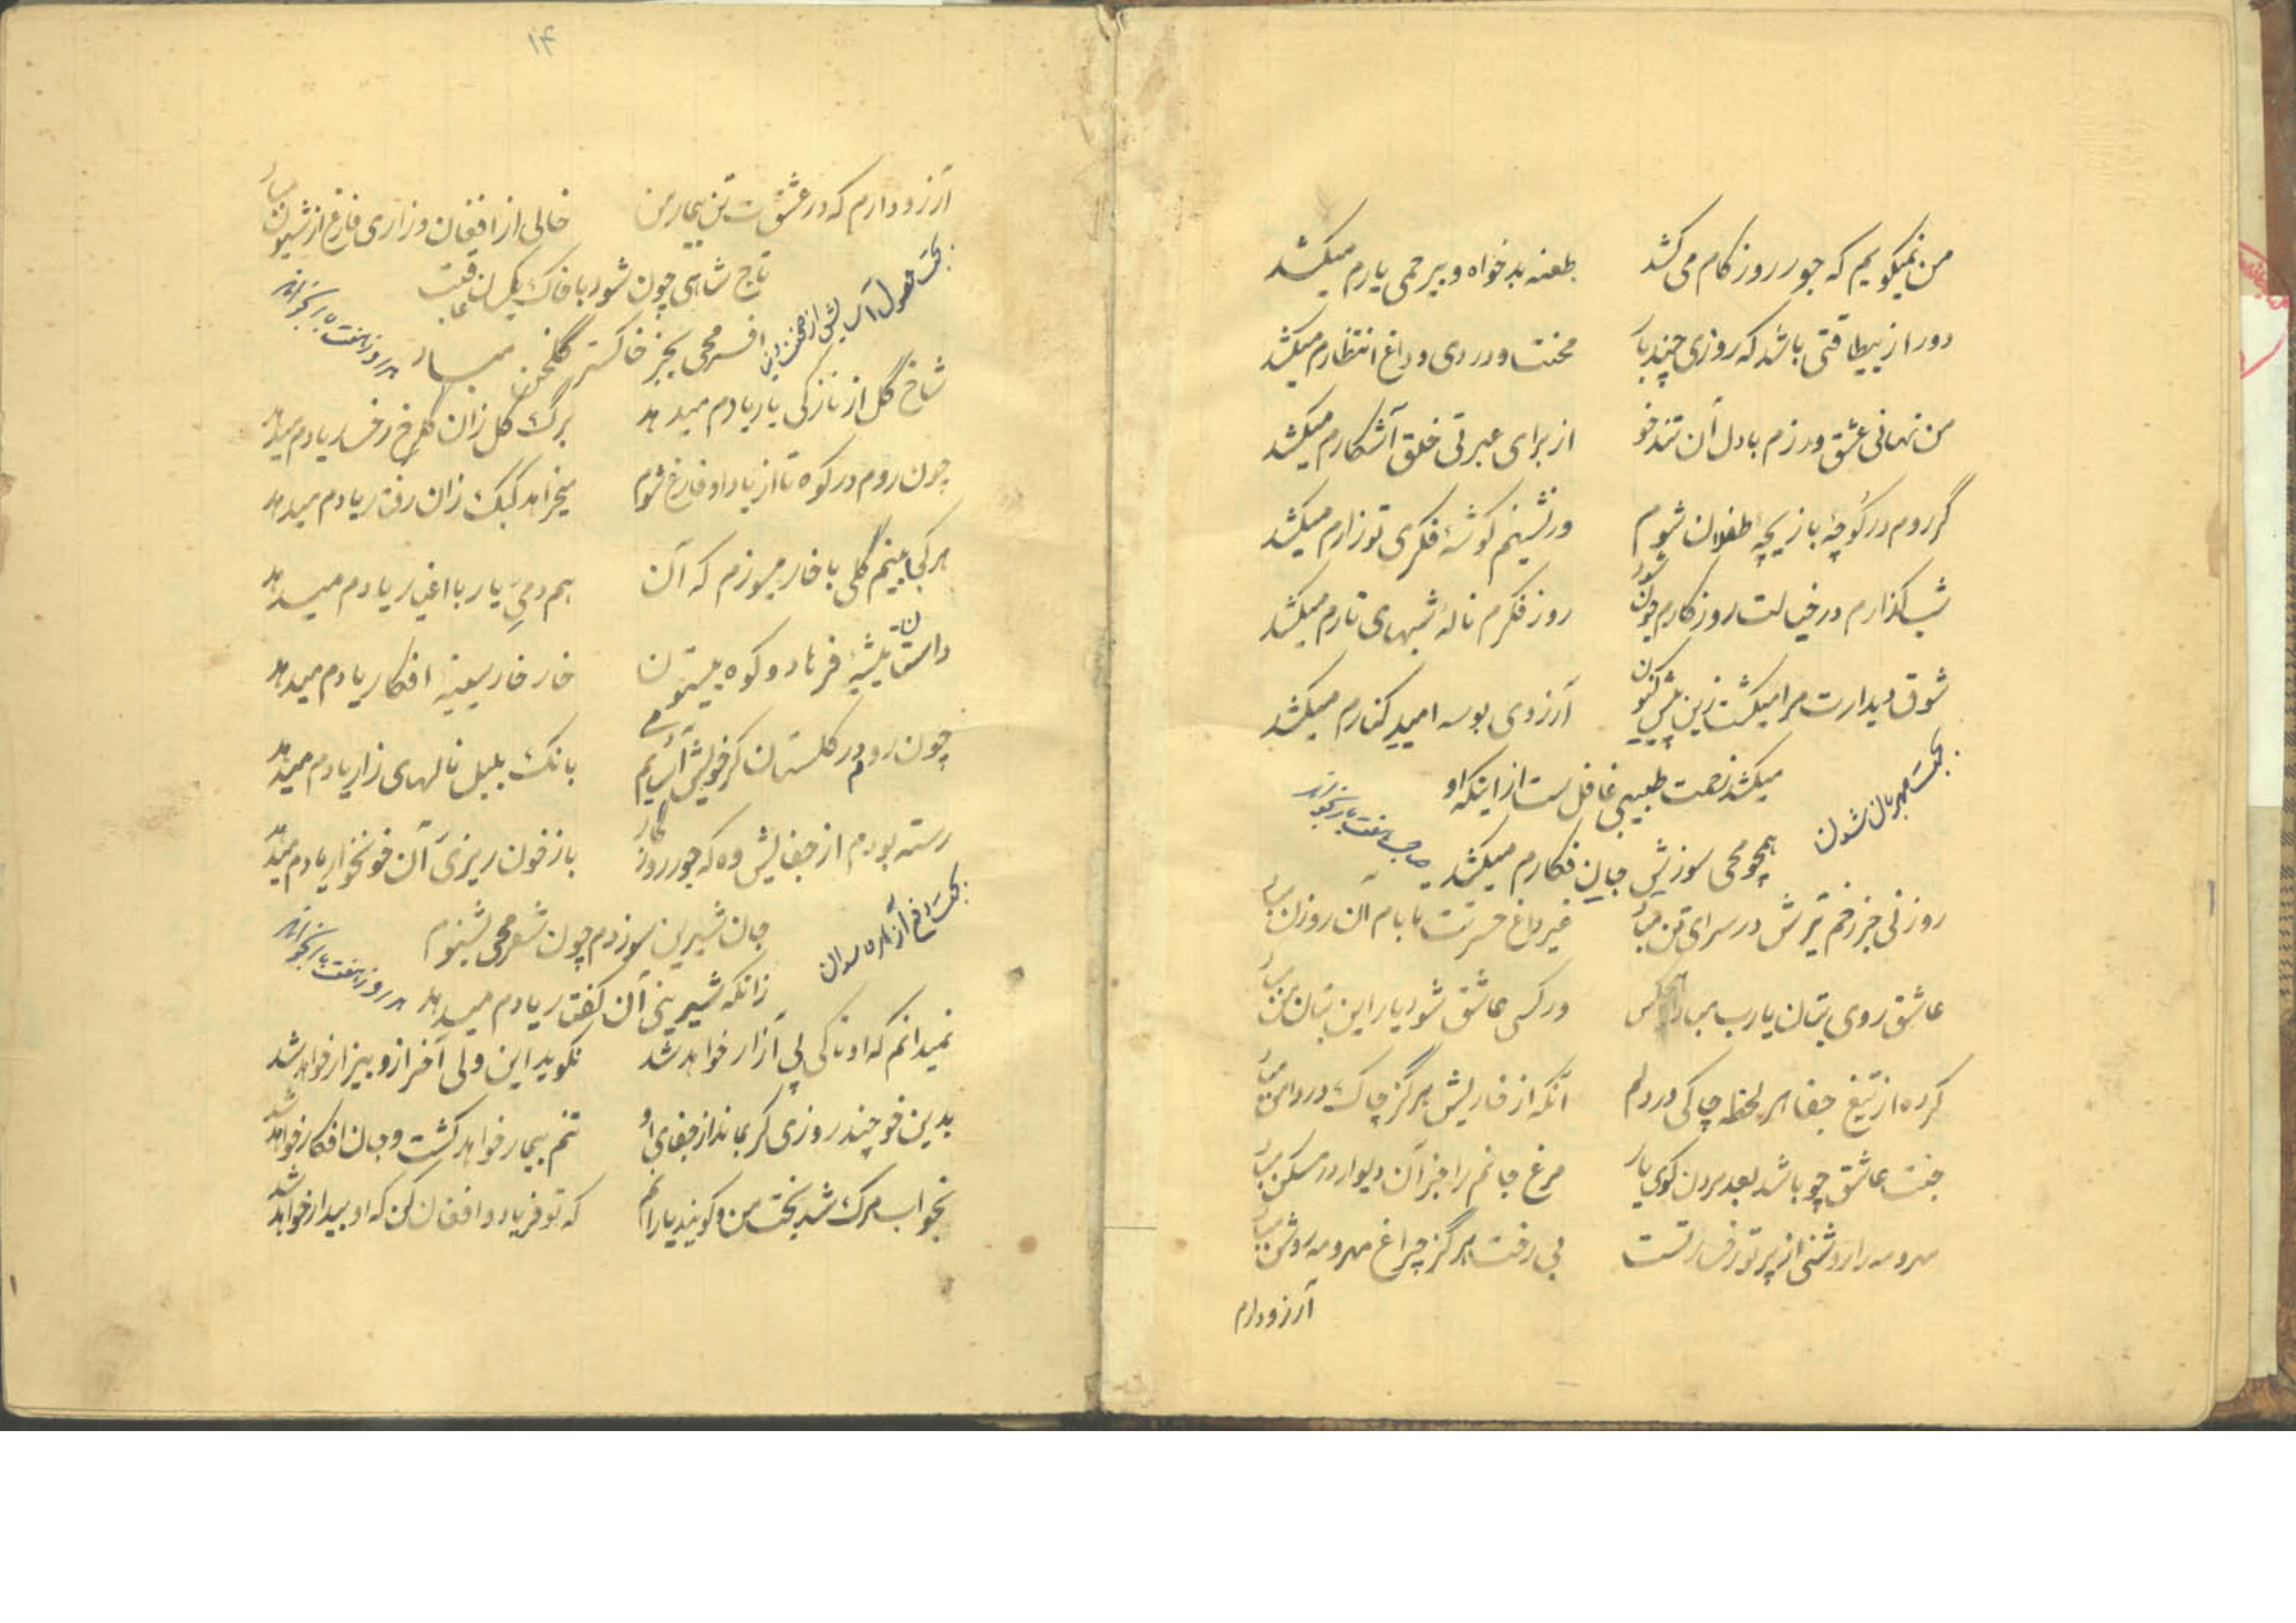 من نمیکویم که جور روزکارم می کشد طعنه بدخواه و بیرحمی یارم میکشد
دور از بیطاقتی باشد که روزی چند یار محنت و دردی و داغ انتظارم میکشد
من نهانی عشق ورزم با دل آن تندخو از برای عبرتی خلق آشکارم میکشد
گر روم در کوچهٔ بازیچهٔ طفلان شوم ور نشینم کوشهٔ فکری تو زارم میکشد
شب کذارم در خیالت روز کارم چون شود روز فکرم نالهٔ شبهای تارم میکشد
شوق دیدارت مرا میکشت زین پیش کنون آرزوی بوسه امید کنارم میکشد
بجهت مهربان شدن
میکشد زحمت طبیبی غافل ست از اینکه او
همچو محی سوزش جان فکارم میکشد
صباح هفت بار بخواند
روزنی جز زخم تیرش در سرای تن مباد غیر داغ حسرتت تا بام آن روزن مباد
عاشق روی بتان یا رب مباد هیچکس ور کسی عاشق شود یار این بتان من مباد
کرده از تیغ جفا هر لحظه چاکی در دلم آنکه از خاریش هرگز چاک در دامن مباد
جنت عاشق چو باشد بعد مردن کوی یار مرغ جانم را جز آن دیوار در مسکن مباد
مهر و مه را روشنی از پرتو رخسار تست بی رخت هرگز چراغ مهر و مه روشن مباد
آرزو دارم
۱۴
آرزو دارم که در عشقت تن بیمار من خالی از افغان و زاری فارغ از شیون مباد
تاج شاهی چون شود با خاک یکسان عاقبت
افسر محی بجز خاکستر گلخن مباد
هر روز هفت بار بخواند
شاخ گل از نازکی یار یادم میدهد برگ گل زان گلرخ رخسار یادم میدهد
چون روم در کوه تا از یاد او فارغ شوم میخرامد کبک زان رفتار یادم میدهد
هر کجا بینم گلی با خار میسوزم که آن همدمیِ یار با اغیار یادم میدهد
داستان تیشهٔ فرهاد و کوه بیستون خار خار سینهٔ افکار یادم میدهد
چون روم در کلستان کز خویش آسایم دمی بانک بلبل نالهای زار یادم میدهد
رسته بودم از جفایش وه که جور روزگار باز خون ریزیَ آن خونخوار یادم میدهد
جان شیرین سوزدم چون شعر محی بشنوم
زانکه شیرینی آن گفتار یادم میدهد
هر روز هفت بار بخواند
نمیدانم که او تا کی پی آزار خواهد شد نگوید این ولی آخر ازو بیزار خواهد شد
بدین خو چند روزی گر بماند از جفای او تنم بیمار خواهد گشت و جان افکار خواهد شد
بخواب مرک شد بخت من و کویند یارانم که تو فریاد و افغان کن که او بیدار خواهد شد